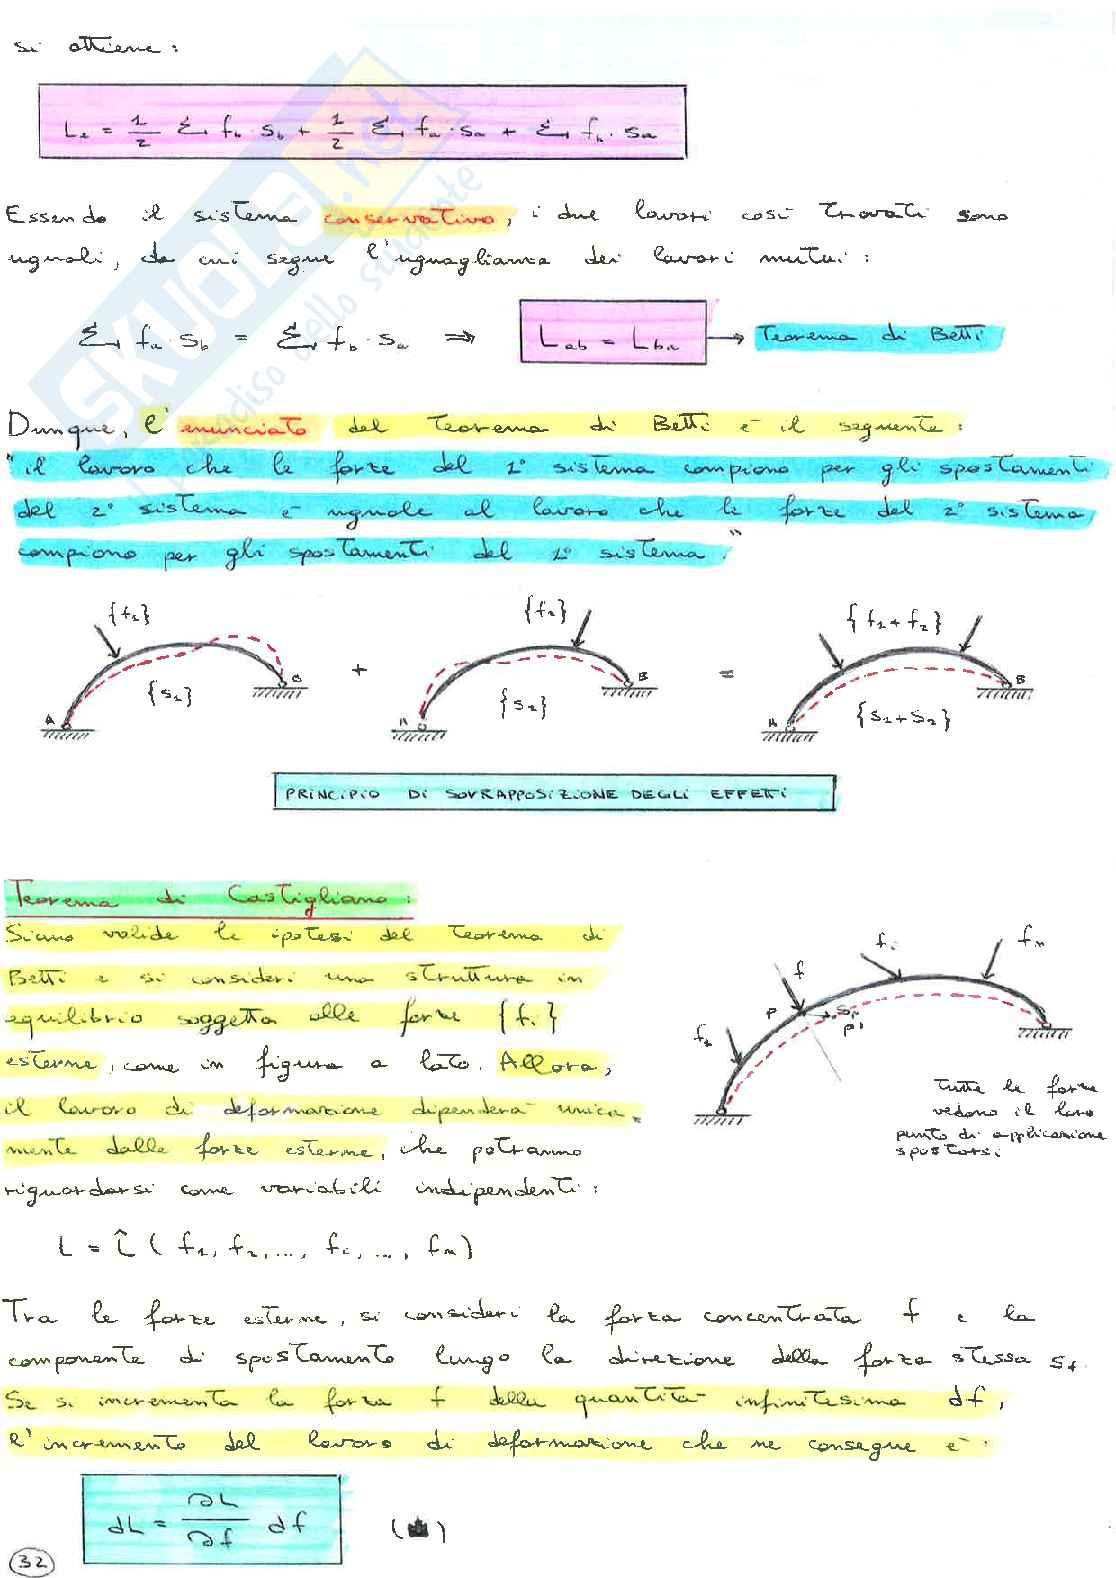 si ottiene:
L₂ = 1/2 Σ f_b · s_b + 1/2 Σ f_a · s_a + Σ f_b · s_a
Essendo il sistema conservativo, i due lavori così trovati sono
uguali, da cui segue l'uguaglianza dei lavori mutui:
Σ f_a · s_b = Σ f_b · s_a ⇒ L_ab = L_ba → Teorema di Betti
Dunque, l'enunciato del Teorema di Betti è il seguente:
"il lavoro che le forze del 1° sistema compiono per gli spostamenti
del 2° sistema è uguale al lavoro che le forze del 2° sistema
compiono per gli spostamenti del 1° sistema."
{f₁} {f₂} {f₁+f₂}
A B + A B = A B
{s₁} {s₂} {s₁+s₂}
PRINCIPIO DI SOVRAPPOSIZIONE DEGLI EFFETTI
Teorema di Castigliano:
Siano valide le ipotesi del Teorema di
Betti e si consideri una struttura in
equilibrio soggetta alle forze {f_i}
esterne, come in figura a lato. Allora,
il lavoro di deformazione dipenderà unica-
mente dalle forze esterne, che potranno
riguardarsi come variabili indipendenti:
f₁ f f_i f_n
P s_f P'
Tutte le forze
vedono il loro
punto di applicazione
spostarsi
L = L̂ (f₁, f₂, ..., f_i, ..., f_n)
Tra le forze esterne, si consideri la forza concentrata f e la
componente di spostamento lungo la direzione della forza stessa s_f.
Se si incrementa la forza f della quantità infinitesima df,
l'incremento del lavoro di deformazione che ne consegue è:
dL = ∂L/∂f df
32
SKUOLA.net
il paradiso dello studente